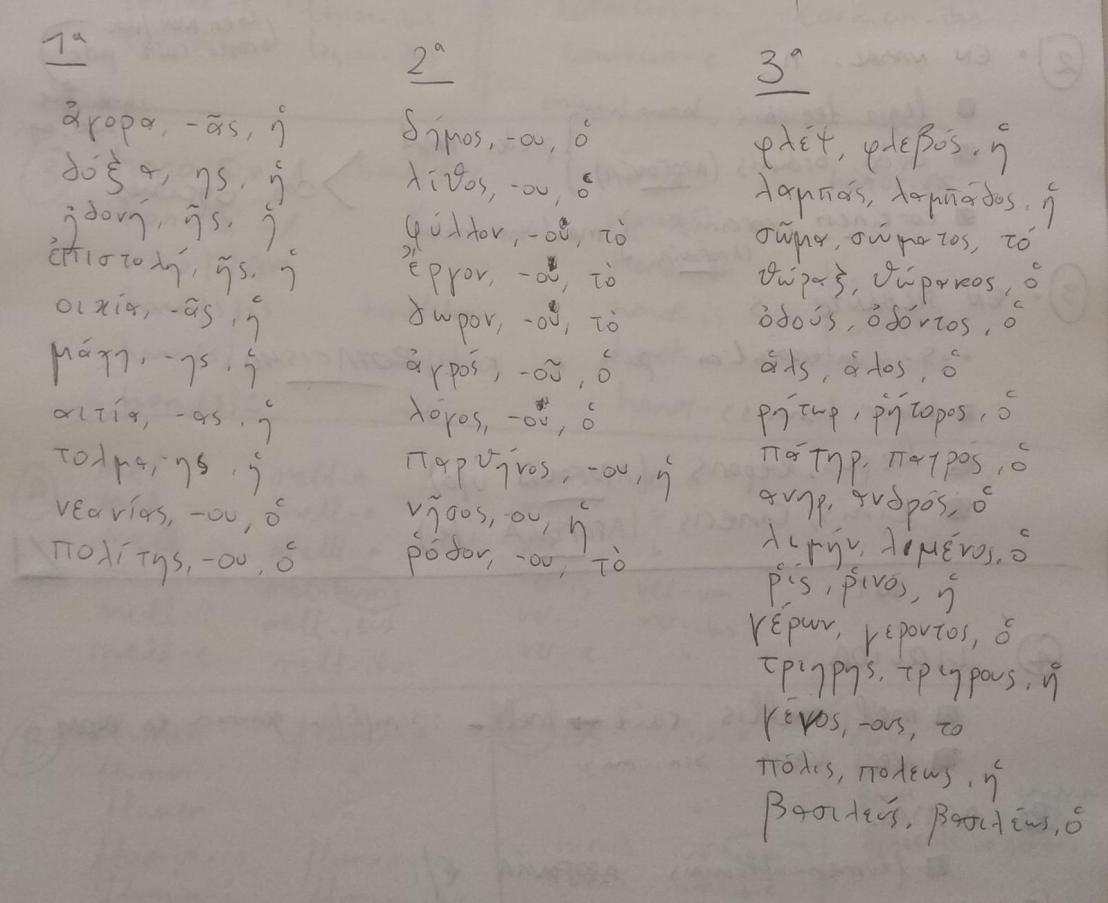 1ª
ἀγορα, -ᾶς, ἡ
δόξα, ης, ἡ
ἡδονή, ῆς, ἡ
ἐπιστολή, ῆς, ἡ
οικία, -ᾶς, ἡ
μάχη, -ης, ἡ
αιτία, -ας, ἡ
τολμα, -ης, ἡ
νεανίας, -ου, ὁ
πολίτης, -ου, ὁ
2ª
δήμος, -ου, ὁ
λίθος, -ου, ὁ
φύλλον, -ου, τὸ
ἔργον, -ου, τὸ
δωρον, -ου, τὸ
ἀγρός, -οῦ, ὁ
λόγος, -ου, ὁ
παρθήνος, -ου, ἡ
νῆσος, -ου, ἡ
ῥόδον, -ου, τὸ
3ª
φλέψ, φλεβός, ἡ
λαμπάς, λαμπάδος, ἡ
σῶμα, σώματος, τό
θώραξ, θώρακος, ὁ
ὀδούς, ὀδόντος, ὁ
ἁλς, ἁλος, ὁ
ρήτωρ, ῥήτορος, ὁ
πάτηρ, πατρὸς, ὁ
ανηρ, ανδρός, ὁ
λιμήν, λιμένος, ὁ
ῥίς, ῥινός, ἡ
γέρων, γεροντος, ὁ
τριηρης, τριηρους, ἡ
γένος, -ους, το
πόλις, πολεως, ἡ
βασιλεύς, βασιλέως, ὁ